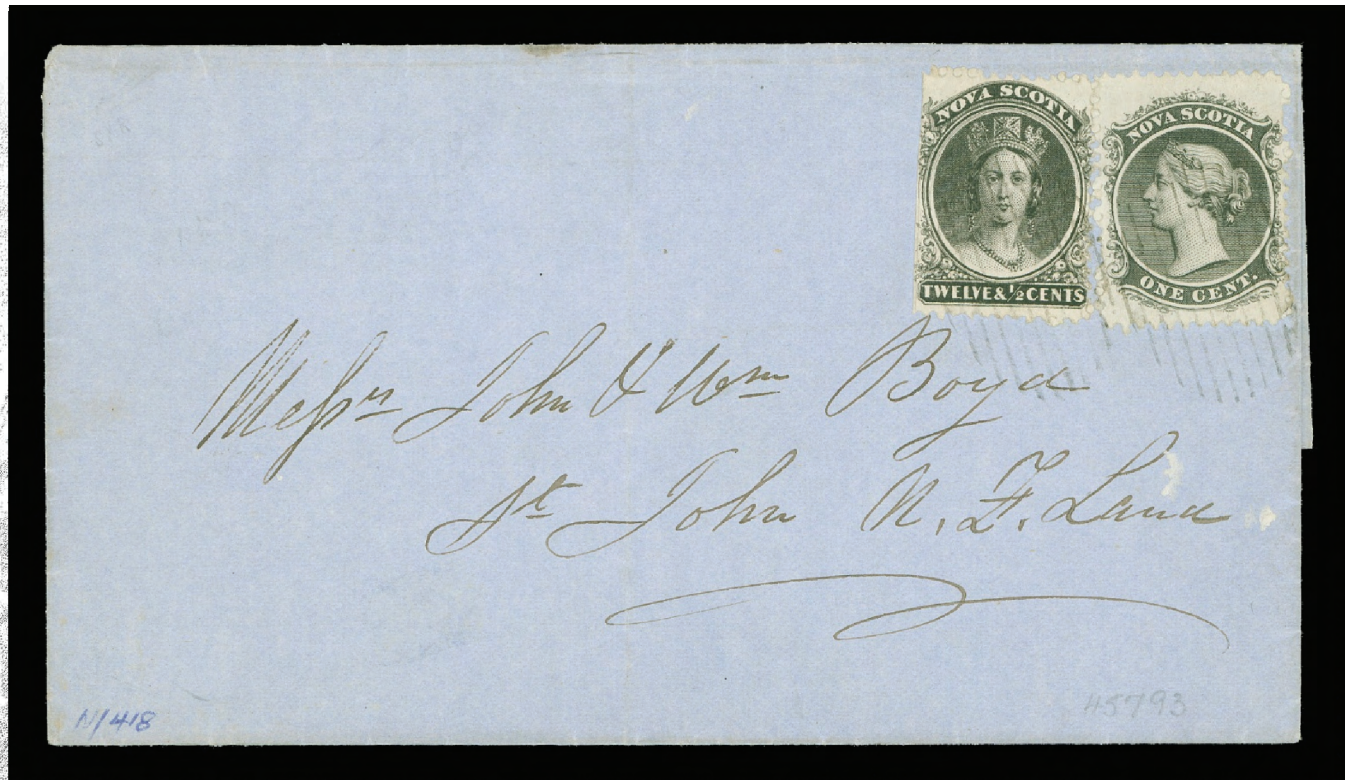 NOVA SCOTIA
TWELVE & 1/2 CENTS
NOVA SCOTIA
ONE CENT.
Messrs John & Wm Boyd
St John N. F. Land
N/418
45793